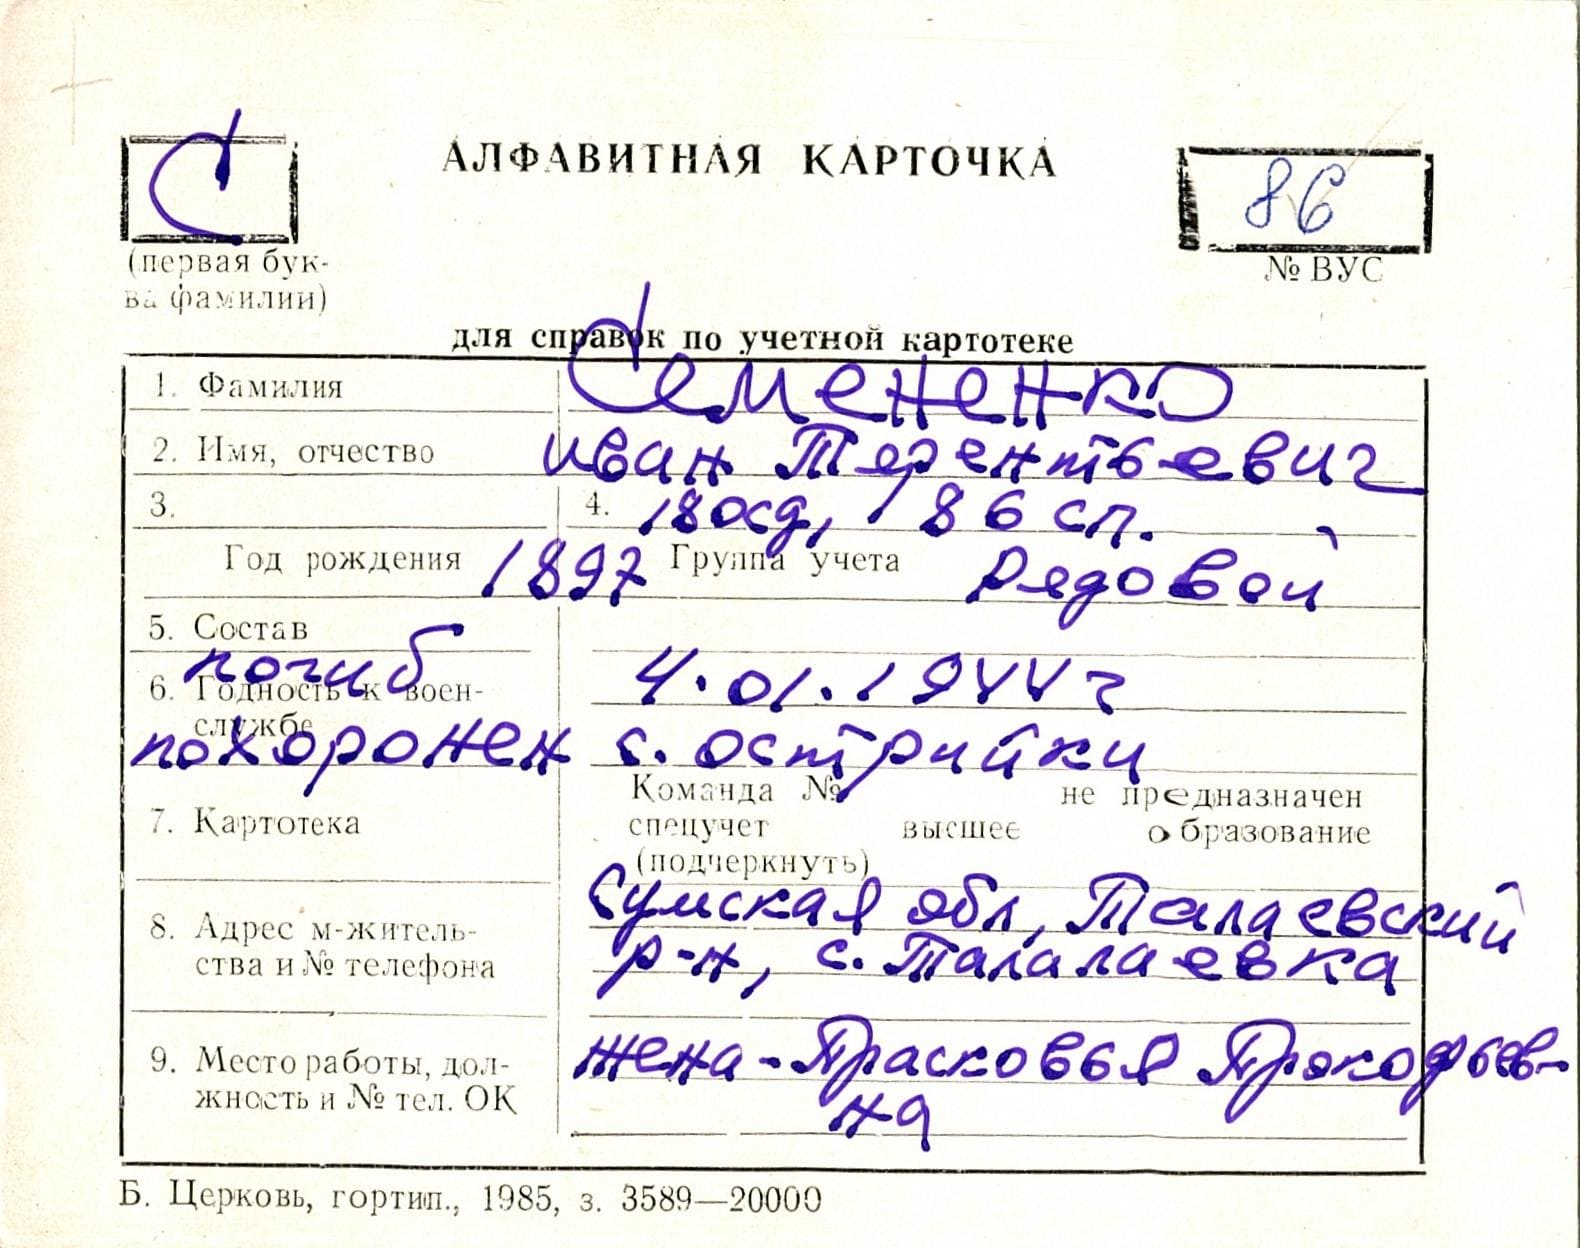 С
АЛФАВИТНАЯ КАРТОЧКА
86
(первая бук-
ва фамилии)
№ ВУС
для справок по учетной картотеке
1. Фамилия Семененко
2. Имя, отчество Иван Терентьевич
3. 4. 180сд, 186 сп.
Год рождения 1897 Группа учета рядовой
5. Состав
погиб 4.01.1944г
6. Годность к воен-
службе
похоронен с. Острийки
Команда № не предназначен
7. Картотека спецучет высшее образование
(подчеркнуть)
Сумская обл, Талаевский
8. Адрес м-житель-
ства и № телефона р-н, с. Талалаевка
9. Место работы, дол- жена - Прасковья Прокофьев-
жность и № тел. ОК на
Б. Церковь, гортип., 1985, з. 3589—20000